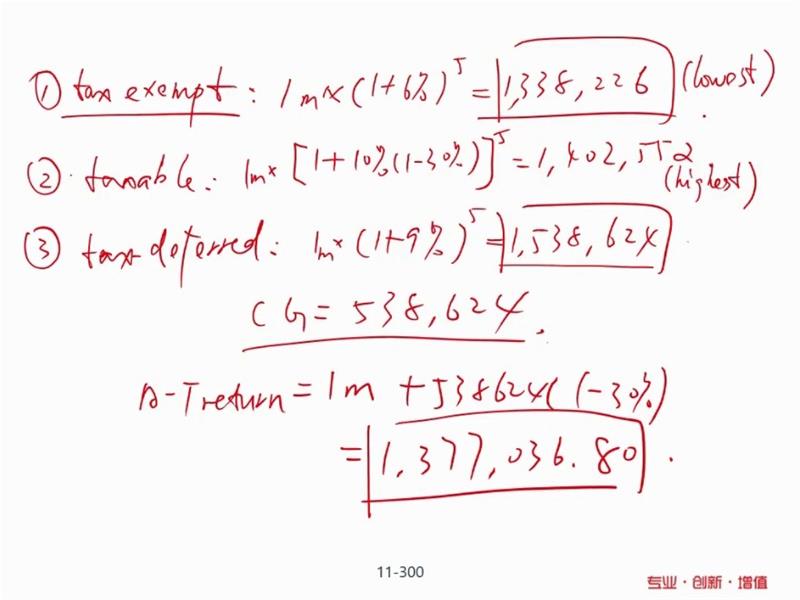 ① tax exempt: 1m×(1+6%)^5 = 1,338,226 (lowest)
② taxable: 1m×[1+10%(1-30%)]^5 = 1,402,552 (highest)
③ tax deferred: 1m×(1+9%)^5 = 1,538,624
CG = 538,624.
A-T return = 1m + 538624(1-30%)
= 1,377,036.80.
11-300
专业·创新·增值